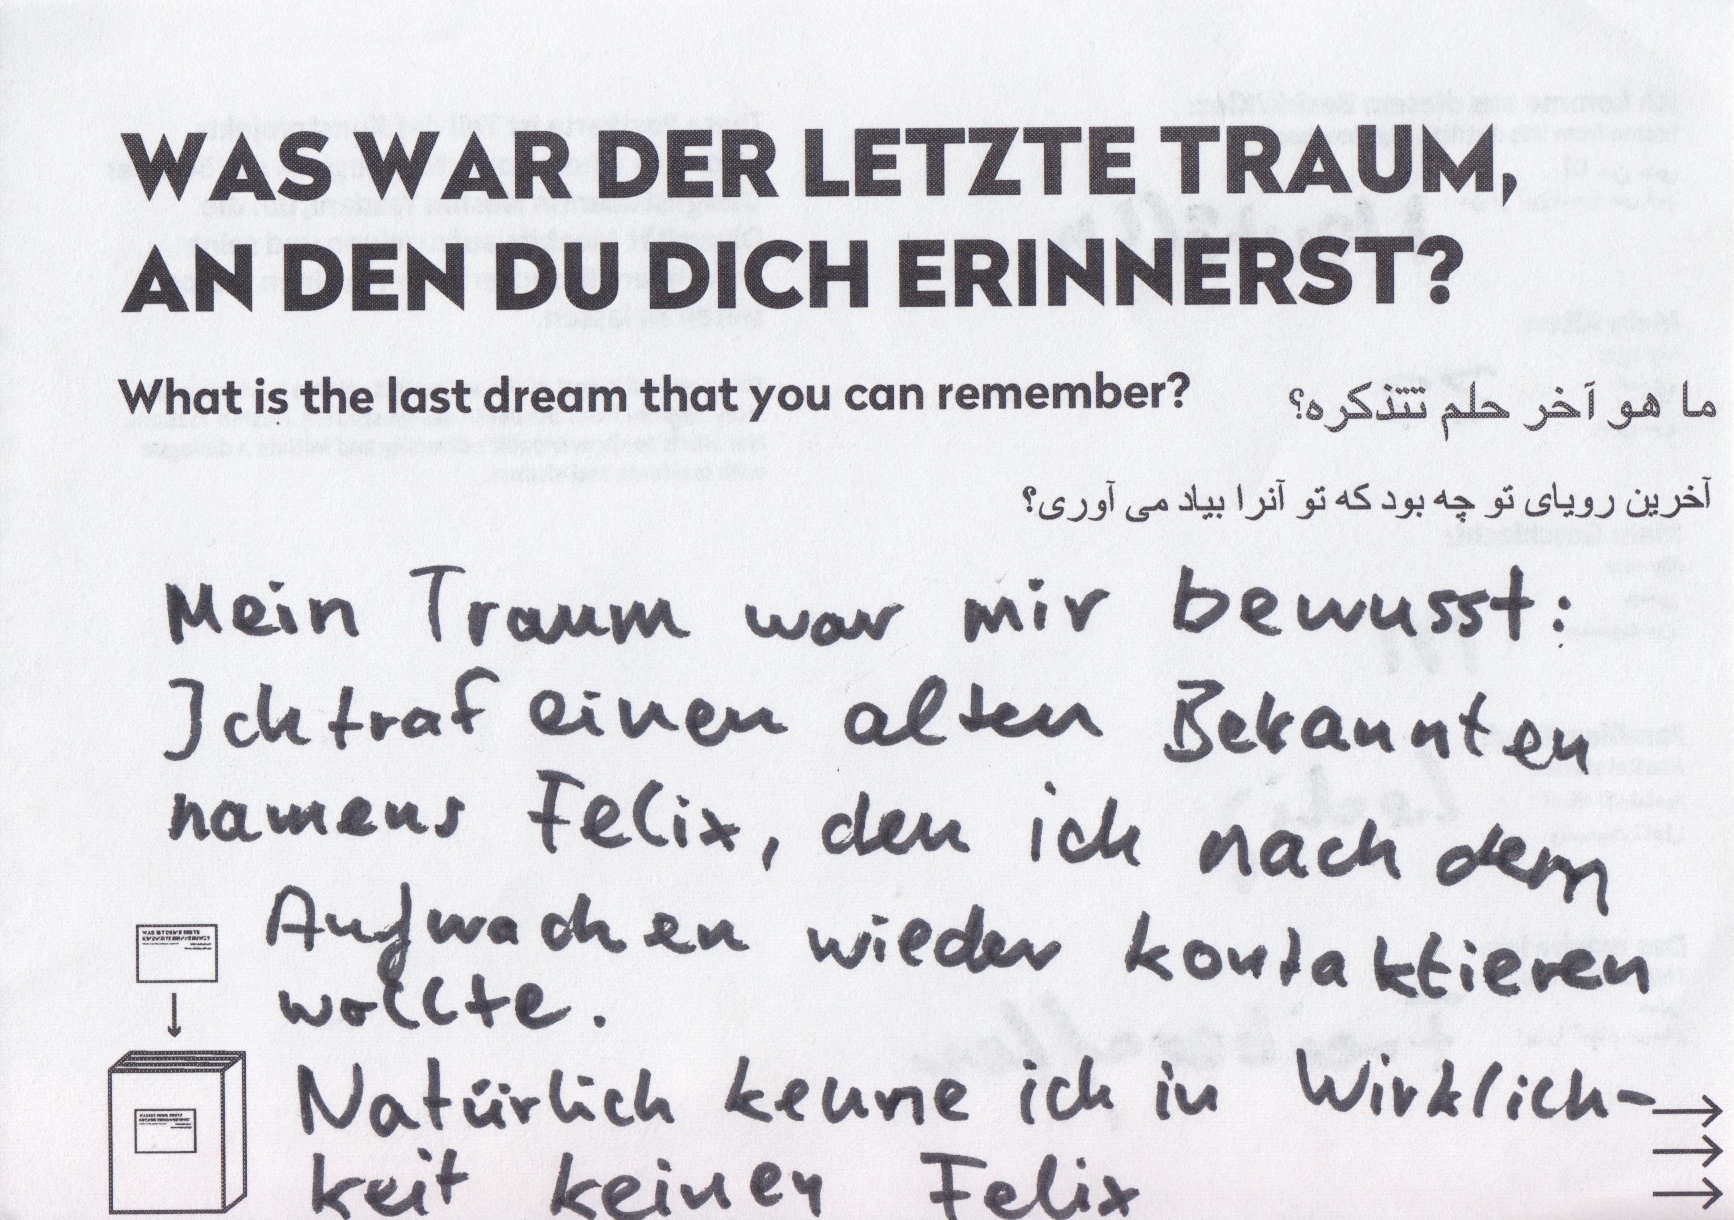 WAS WAR DER LETZTE TRAUM,
AN DEN DU DICH ERINNERST?
What is the last dream that you can remember?
ما هو آخر حلم تتذكره؟
آخرین رویای تو چه بود که تو آنرا بیاد می آوری؟
Mein Traum war mir bewusst:
Ich traf einen alten Bekannten
namens Felix, den ich nach dem
Aufwachen wieder kontaktieren
wollte.
Natürlich kenne ich in Wirklich-
keit keinen Felix